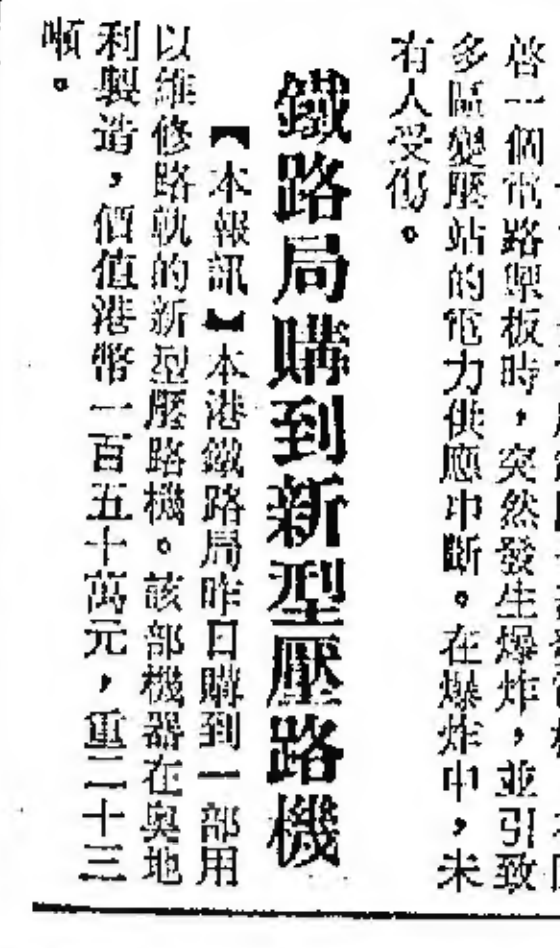 啓一個電路掣板時，突然發生爆炸，並引致
多區變壓站的電力供應中斷。在爆炸中，未
有人受傷。
鐵路局購到新型壓路機
【本報訊】本港鐵路局昨日購到一部用
以維修路軌的新型壓路機。該部機器在奧地
利製造，價值港幣一百五十萬元，重二十三
噸。